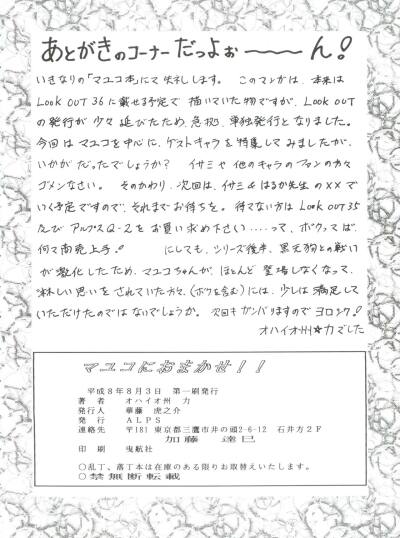 あとがきのコーナーだっよぉ〜〜ん!
いきなりの「マユコ本」にて失礼します。 このマンガは、本来は
LOOK OUT 36 に載せる予定で 描いていた物ですが、LOOK OUT
の発行が 少々 延びたため、急拠、単独発行となりました。
今回は マユコを中心に、ゲストキャラを特集してみましたが、
いかがだったでしょうか? イサミや他のキャラのファンの方々
ゴメンなさい。 そのかわり、次回は、イサミ&はるか先生の××で
いく予定ですので、それまでお待ちを。 待てない方は LOOK OUT 35
及び アルプスQ-2を お買い求め下さい……って、ボクってば、
何て商売上手! にしても、シリーズ後半、黒天狗との戦い
が激化したため、マユコちゃんが、ほとんど 登場しなくなって、
淋しい思いをされていた方々、(ボクを含む)には、少しは満足して
いただけたのではないでしょうか。 次回もガンバリますのでヨロシク!
オハイオ州☆力でした
マユコにおまかせ!!
平成8年8月3日 第一刷発行
著者 オハイオ州 力
発行人 華藤 虎之介
発行 ALPS
連絡先 〒181 東京都三鷹市井の頭2-6-12 石井方2F
加藤 達巳
印刷 曳航社
○乱丁、落丁本は在庫のある限りお取替えいたします。
○禁無断転載